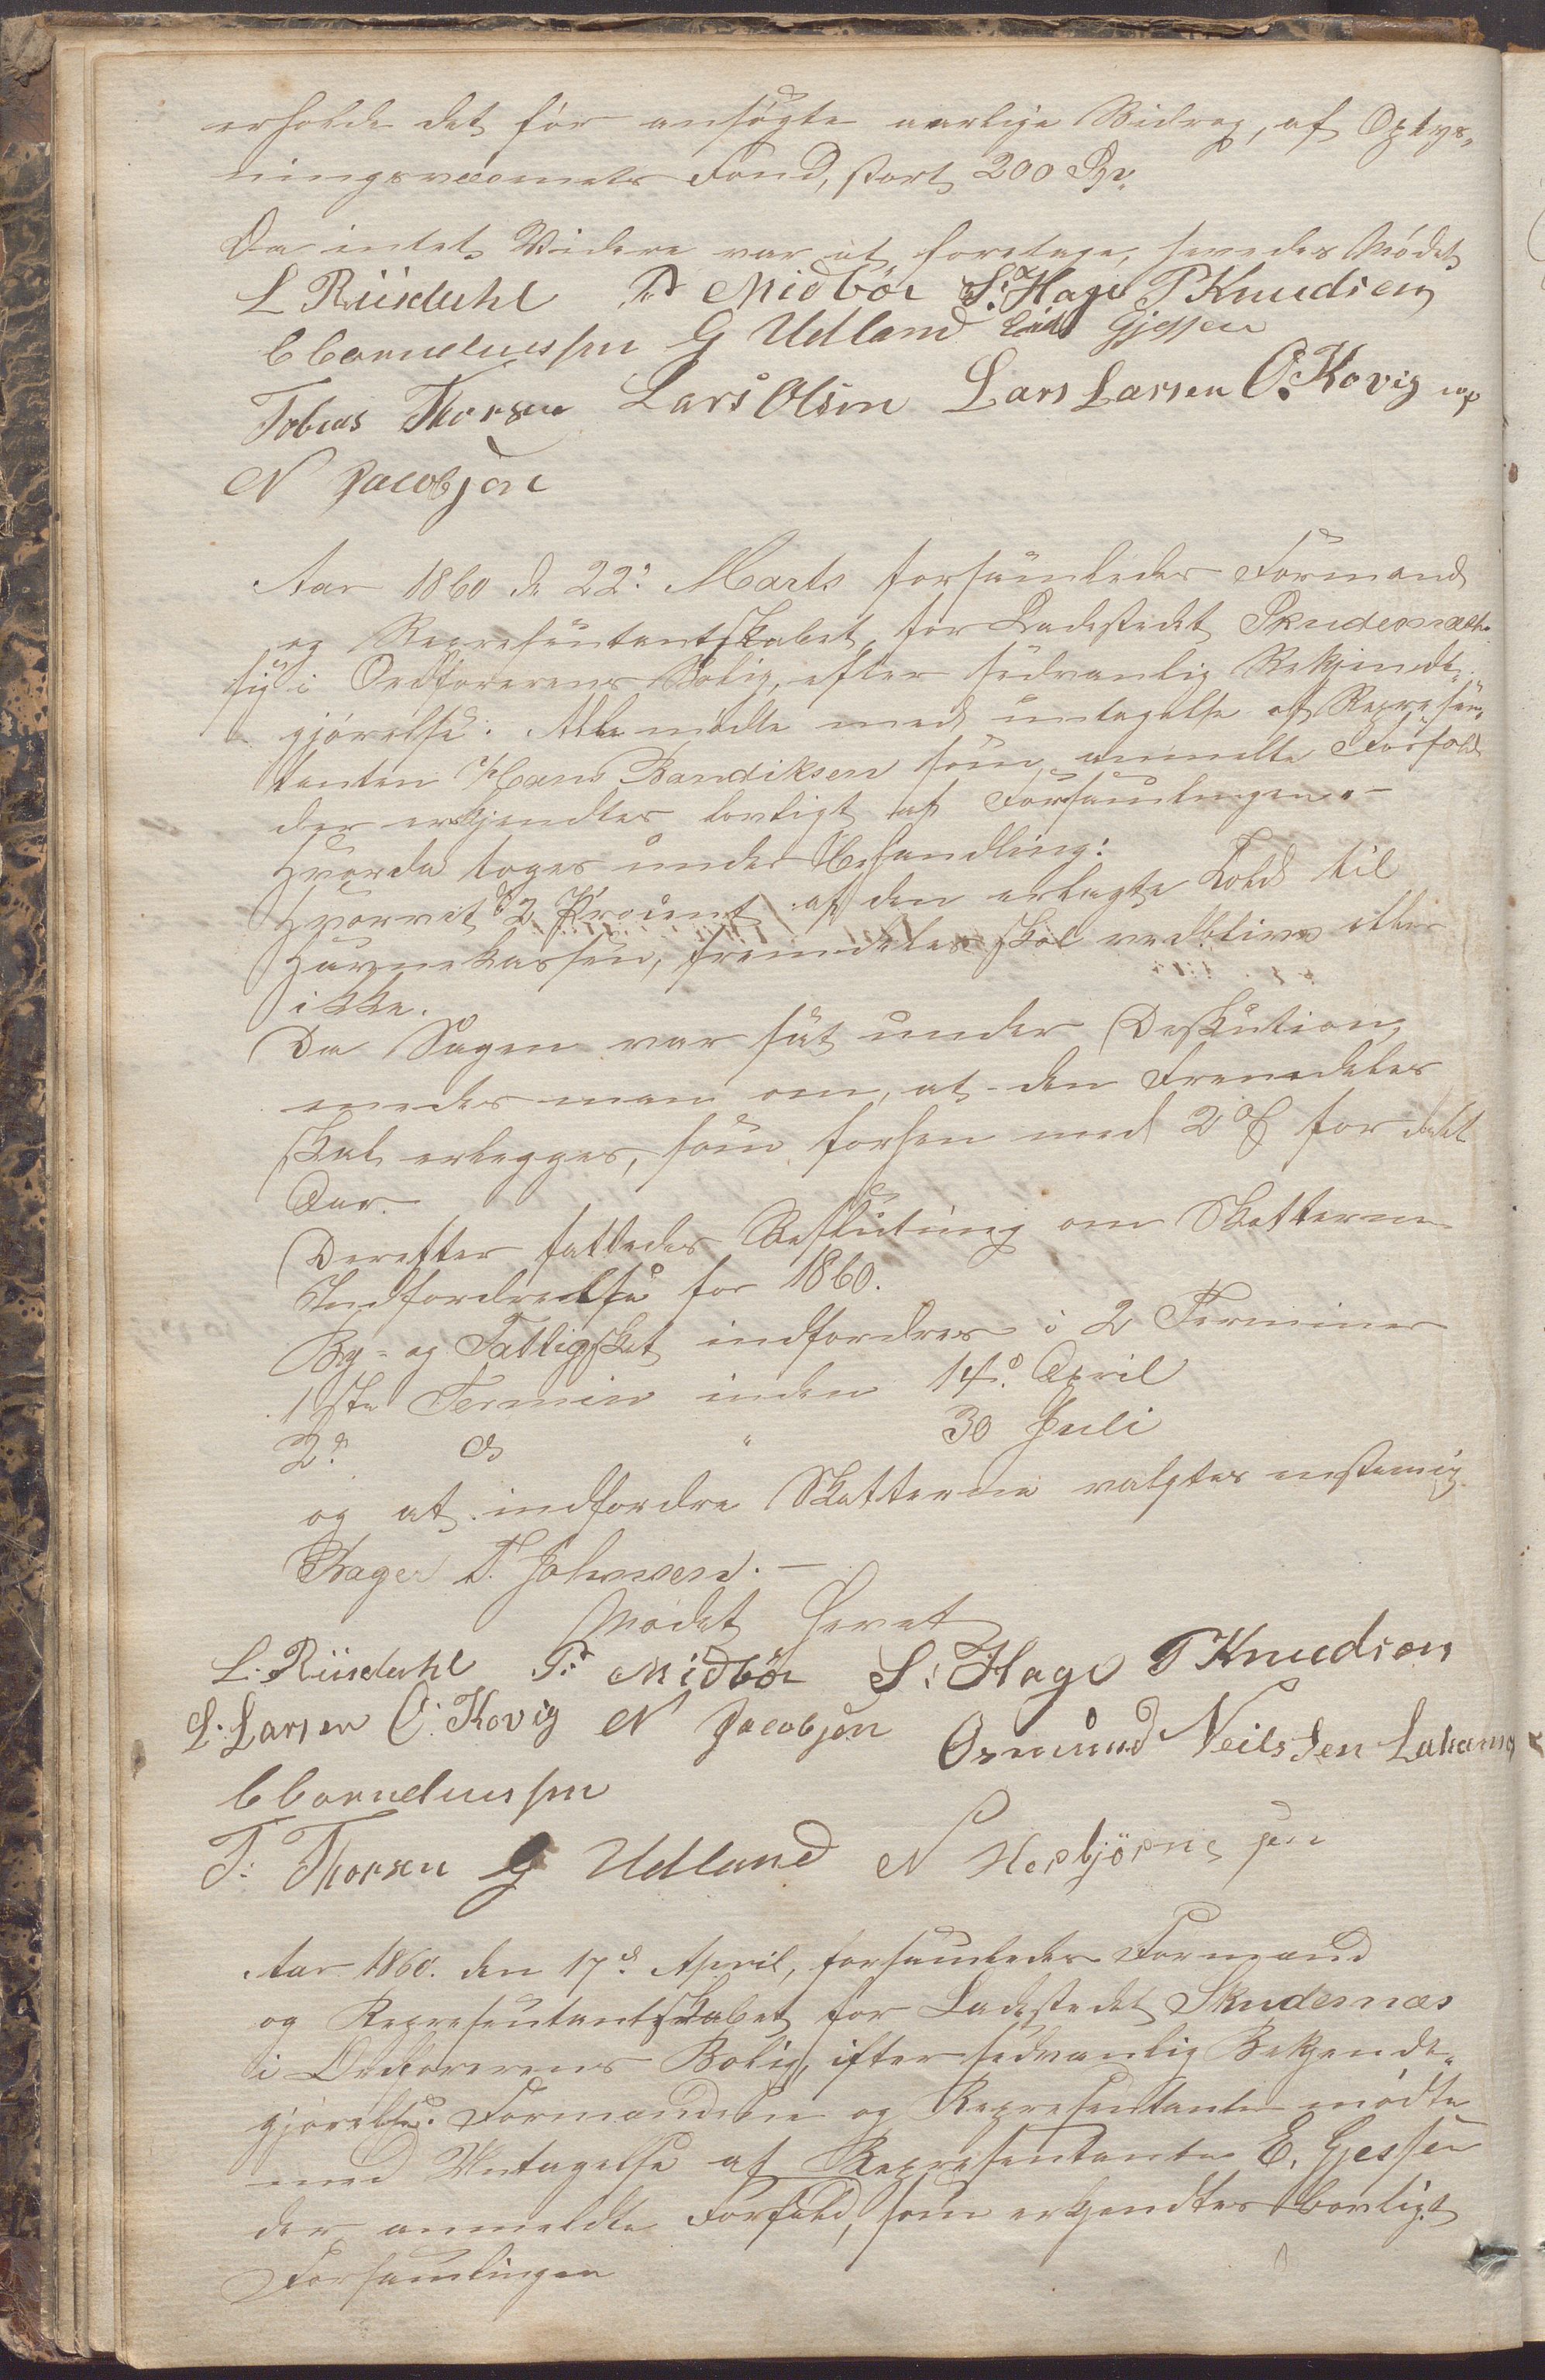 erholde det før ansøgte aarlige Bidrag, af Oplys-
ningsvæsenets Fond, stort 200 Spd.
Da intet Videre var at foretage, hevedes Mødet
L Riisdahl P. Midbøe S. Hage P Knudsen
C Corneliussen G Udland Gjessen
Tobias Thorsen Lars Olsen Lars Larsen O. Kovig
N Jacobsen
Aar 1860 d. 22d Marts forsamledes Formand
og Representantskabet for Ladestedet Skudesnæs
sig i Ordførerens Bolig, efter sedvanlig Bekjendt-
gjørelse. Alle mødte med untagelse af Represen-
tanten Hans Bendiksen som anmelte Forfald
der erkjendtes lovligt af Forsamlingen. –
Hvorda toges under Behandling:
Hvorvit de 2 Procent af den erlagte Told til
Havnekassen, fremdeles skal vedblive eller
ikke.
Da Sagen var sat under Deskution
enedes man om, at den Fremdeles
skal erlegges, som forhen med 2 % for dette
Aar.
Derefter fattedes Beslutning om Skatternes
Indfordrelse for 1860.
By- og Fattigskat indfordres i 2 Terminer
1ste Termin inden 14d April
2d do " 30 Juli
og at indfordre Skatterne valgtes enstemig
Bager T. Johnsen. –
Mødet hevet
L. Riisdahl P. Midbøe S. Hage P Knudsen
L. Larsen O. Kovig N Jacobsen Osmund Neilssen
C Corneliussen
T. Thorsen G Udland N Herbjørnsen
Aar 1860. den 17d April, forsamledes Formand
og Representantskabet for Ladestedet Skudesnæs
i Ordførerens Bolig, efter sedvanlig Bekjendt-
gjørelse. Formændene og Representanter mødte
med Untagelse af Representanten E. Gjessen
der anmeldte Forfald, som erkjendtes lovligt
Forsamlingen